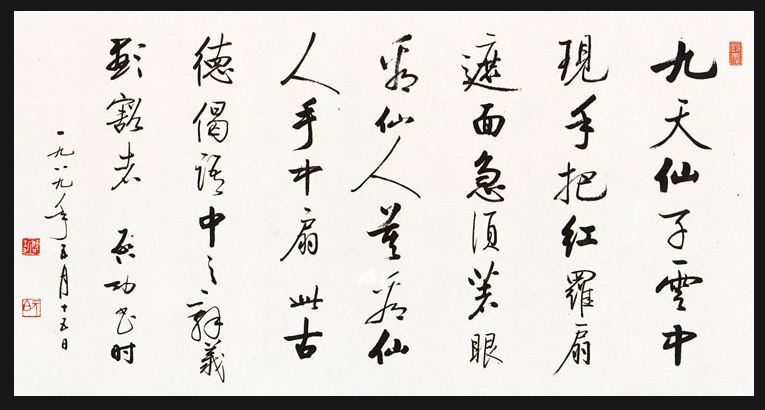 九天仙子雲中
現手把紅羅扇
遮面急須著眼
看仙人莫看仙
人手中扇 此古
德偈語中之辭義
顯豁者 启功书时
一九八九年五月十五日